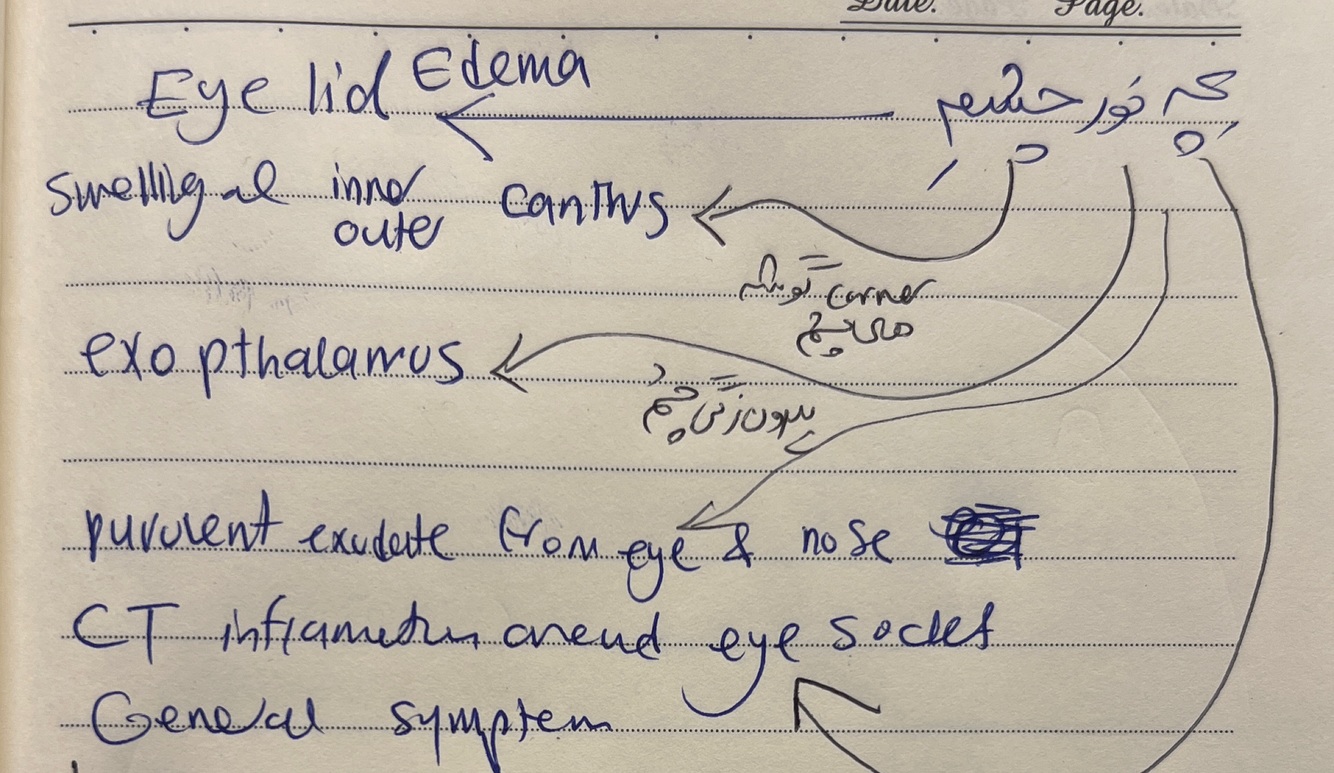 Date. Page.
Eye lid Edema
swelling al inner
outer canthus
corner
exo pthalamus
بیرون زدگی چشم
purulent exudate from eye & nose
CT inflammation around eye socket
General symptom